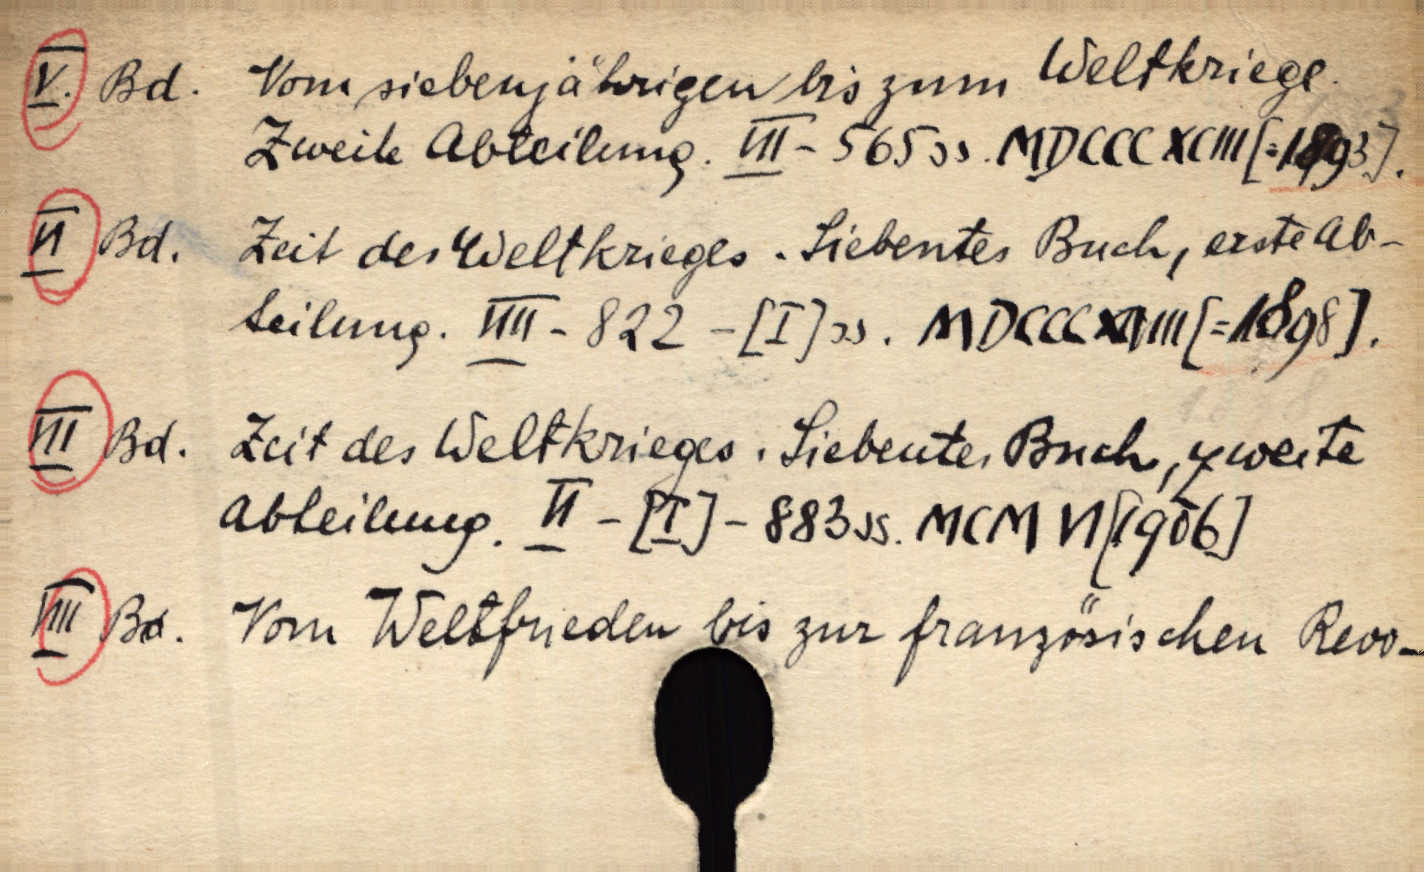 V. Bd. Vom siebenjährigen bis zum Weltkriege.
Zweite Abteilung. VIII - 565 ss. MDCCCXCIII [=1893].
VI Bd. Zeit des Weltkrieges. Siebentes Buch, erste Ab-
teilung. VIIII - 822 - [I] ss. MDCCCXCVIII [=1898].
VII Bd. Zeit des Weltkrieges. Siebentes Buch, zweite
Abteilung. VI - [I] - 883 ss. MCMVI [1906]
VIII Bd. Vom Weltfrieden bis zur französischen Revo-